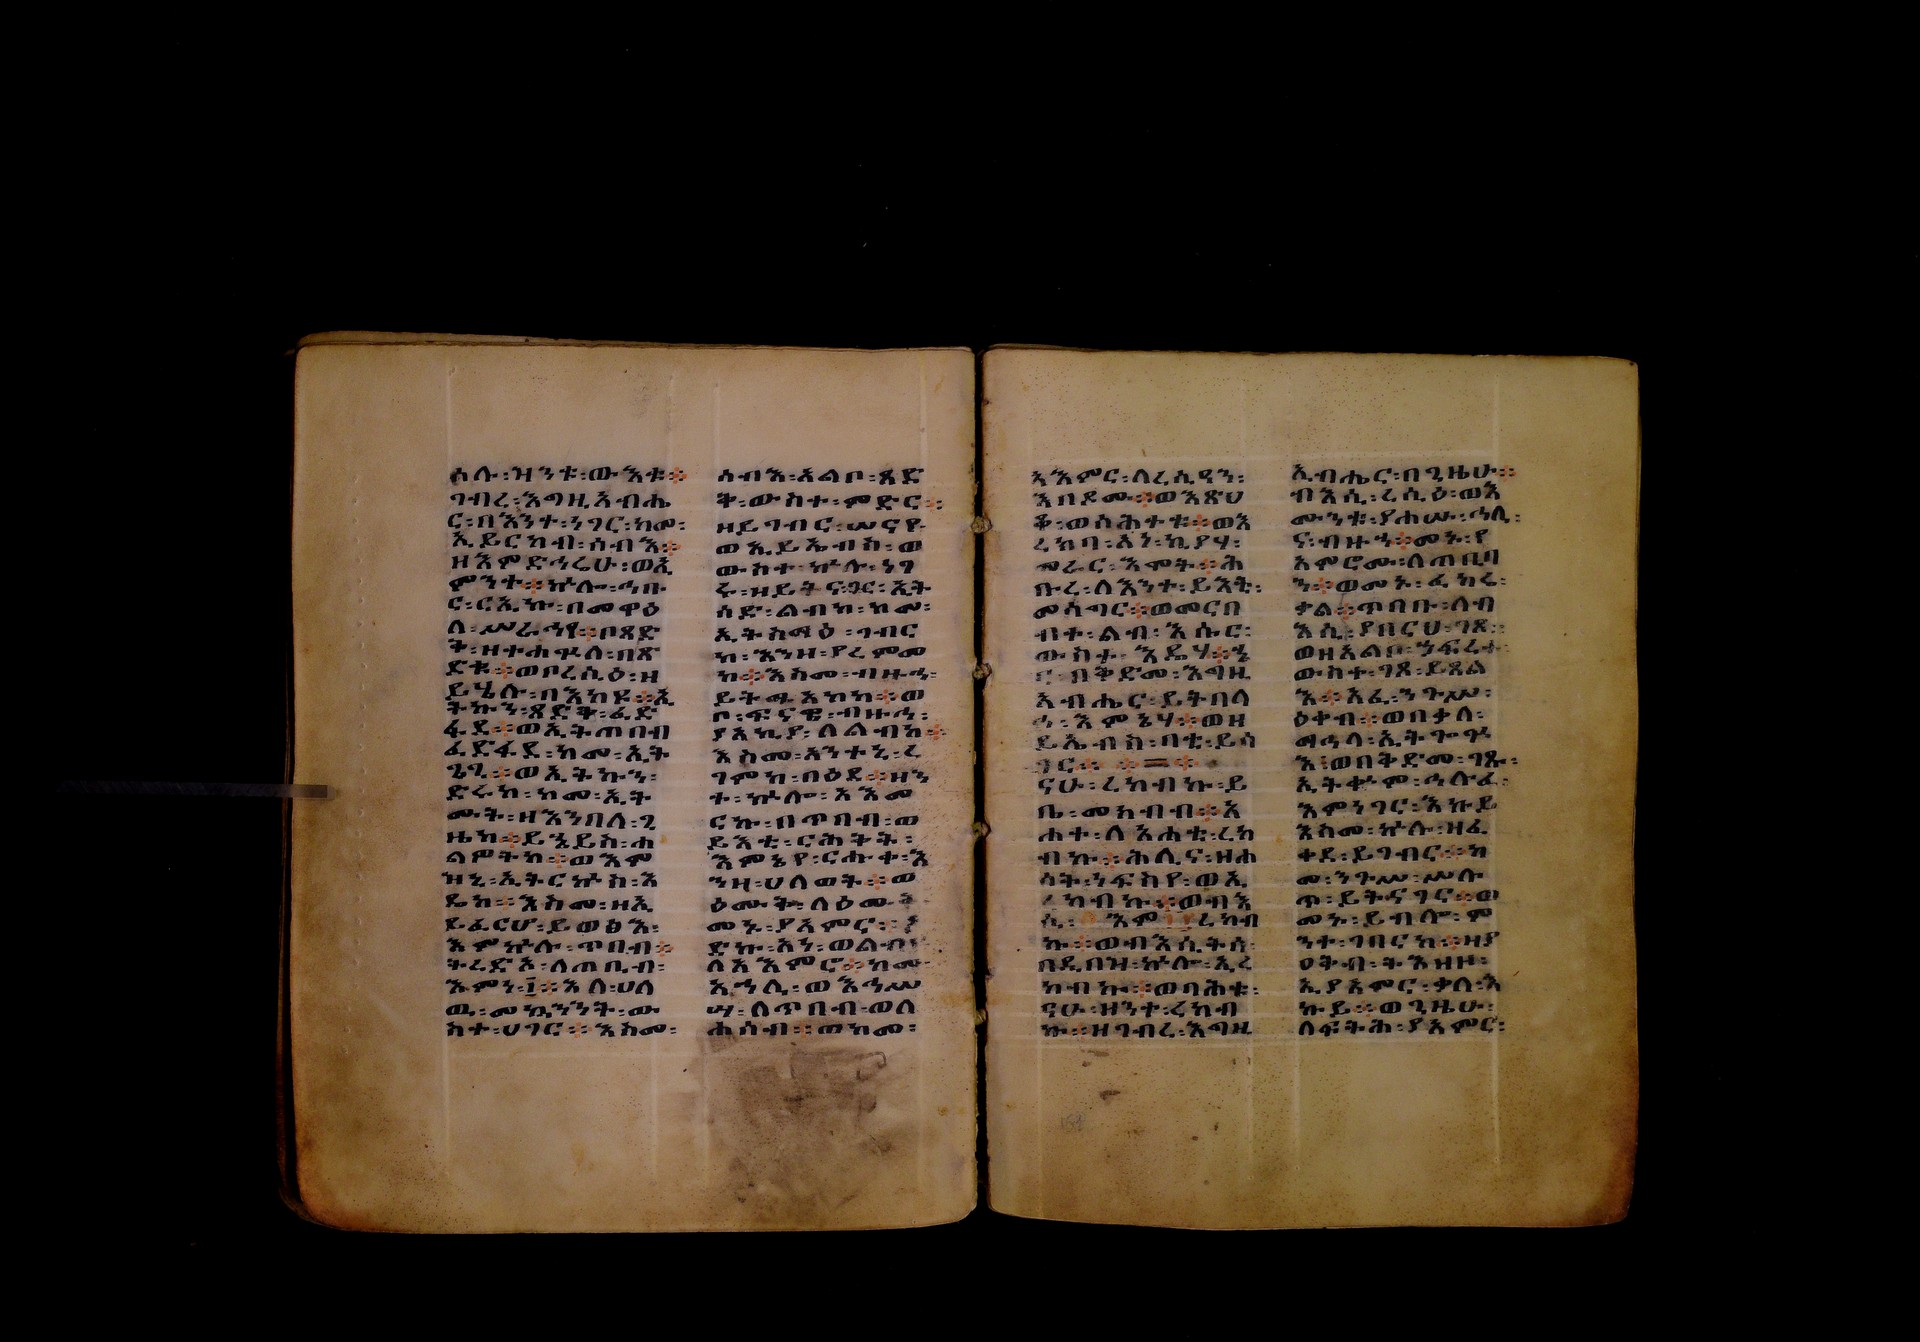 ሰሉ፡ዝንቱ፡ውእቱ።
ገብረ፡እግዚአብሔ
ር፡በእንተ፡ነገር፡ከመ፡
ኢይርከብ፡ሰብእ።
ዘእምድኅሬሁ፡ወኢ
ምንተ።ኵሎ፡ኅበ
ር፡ርኢኩ፡በመዋዕ
ለ፡ሥራኅየ።ቦጻድ
ቅ፡ዘተሐጕለ፡በጽ
ድቁ።ወቦረሲዕ፡ዘ
ይሄሉ፡በእከዩ።ኢ
ትኩን፡ጻድቅ፡ፈድ
ፋደ።ወኢትጠበብ
ፈድፋደ፡ከመ፡ኢት
ጌጊ።ወኢትኩን፡
ድሩከ፡ከመ፡ኢት
ሙት፡ዘእንበለ፡ጊ
ዜከ።ይኄይስ፡ሐ
ልምትከ።ወእም
ዝኒ፡ኢትርኵስ፡እ
ዴከ።እስመ፡ዘኢ
ይፈርሆ፡ይወፅእ፡
እምኵሉ፡ጥበብ።
ትረድኦ፡ለጠቢብ፡
እምነ፡፲፡እለ፡ሀለ
ዉ፡መኳንንት፡ው
ስተ፡ሀገር።እስመ፡
ሰብእ፡አልቦ፡ጻድ
ቅ፡ውስተ፡ምድር።
ዘይገብር፡ሠናየ
ወኢይኤብስ፡ወ
ውስተ፡ኵሉ፡ነገ
ሩ፡ዘይትናገር፡ኢት
ሰድ፡ልብከ፡ከመ፡
ኢትስማዕ፡ገብር
ከ፡እንዘ፡የረምመ
ከ።እስመ፡ብዙኅ፡
ይትሜአከከ።ወ
ቦ፡ፍናዌ፡ብዙኅ፡
ያአኪያ፡ለልብከ።
እስመ፡አንተኒ፡ረ
ገምከ፡በዕደ።ዘን
ተ፡ኵሎ፡አእመ
ርኩ፡በጥበብ፡ወ
ይእቲ፡ርሕቅት፡
እምኔየ፡ርሑቀ፡እ
ንዘ፡ሀለወት።ወ
ዕሙቅ፡ለዕመ
መኑ፡ያአምር፡
ድኩ፡አነ፡ወልብየ
ለአእምሮ።ከመ
አኀሊ፡ወእኅሥ
ሣ፡ለጥበብ፡ወለ
ሕሰብ።ወከመ፡
አእምር፡ለረሲዓን፡
እበዶሙ።ወእጽህ
ቆ፡ወስሕተቱ።ወእ
ረከባ፡አነ፡ኪያሃ፡
መራር፡እሞት።ሕ
ቡረ፡ለእንተ፡ይእቲ፡
መሳግር።ወመርበ
ብተ፡ልብ፡እሱር፡
ውስተ፡እዴሃ።ኄ
ር፡በቅድመ፡እግዚ
አብሔር፡ይትባላ
ኅ፡እምኔሃ።ወዘ
ይኤብስ፡ባቲ፡ይሰ
ገር።
ናሁ፡ረከብኩ፡ይ
ቤ፡መክብብ።አ
ሐተ፡ለአሐቲ፡ረከ
ብኩ።ሕሊና፡ዘሐ
ሰት፡ነፍስየ፡ወኢ
ረከብኩ።ወብእ
ሲ፡እም፲፻ረከብ
ኩ።ወብእሲትሰ፡
በዲበዝ፡ኵሎ፡ኢረ
ከብኩ።ወባሕቱ፡
ናሁ፡ዘንተ፡ረከብ
ኩ።ዘገብረ፡እግዚ
አብሔር፡በጊዜሁ።
ብእሲ፡ረሲዕ፡ወእ
ሙንቱ፡ያሐሡ፡ኅሊ፡
ና፡ብዙኅ።መኑ፡የ
አምሮሙ፡ለጠቢባ
ን።ወመኑ፡ፈክረ፡
ቃል።ጥበቡ፡ለብ
እሲ፡ያበርህ፡ገጾ፡
ወዘአልቦ፡ኃፍረተ፡
ውስተ፡ገጹ፡ይጸል
እ።አፈ፡ንጉሥ፡
ዕቀብ።ወበቃለ፡
ማኅላ፡ኢትጐጕ
እ፡ወበቅድመ፡ገጹ፡
ኢትቁም፡ኅሉፈ፡
እምነገር፡እኩይ
እስመ፡ኵሉ፡ዘፈ
ቀደ፡ይገብር።ከ
መ፡ንጉሥ፡ሥሉ
ጥ፡ይትናገር።ወ
መኑ፡ይብሎ፡ም
ንተ፡ገበርከ።ዘያ
ዐቅብ፡ትእዛዘ፡
ኢያአምር፡ቃለ፡እ
ኩይ።ወጊዜሁ፡
ለፍትሕ፡ያአምር፡